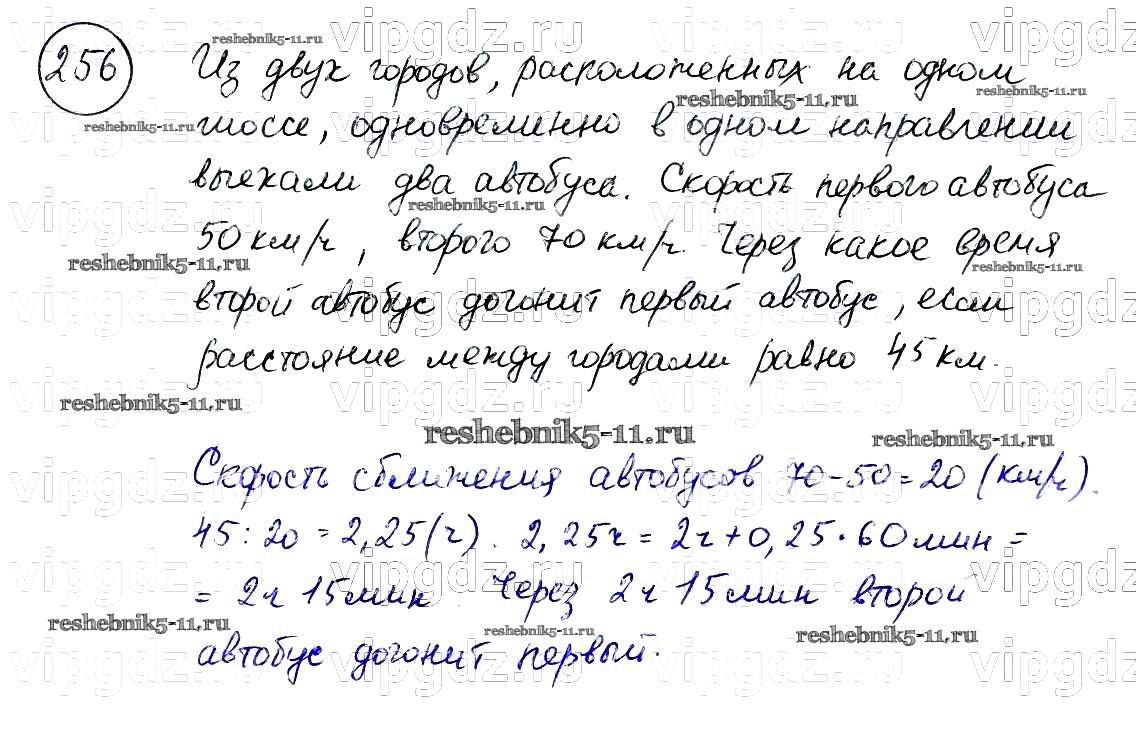 256 Из двух городов, расположенных на одном
шоссе, одновременно в одном направлении
выехали два автобуса. Скорость первого автобуса
50 км/ч, второго 70 км/ч. Через какое время
второй автобус догонит первый автобус, если
расстояние между городами равно 45 км.
Скорость сближения автобусов 70-50=20 (км/ч).
45:20=2,25(ч). 2,25ч=2ч+0,25·60мин=
=2ч 15мин. Через 2ч 15мин второй
автобус догонит первый.